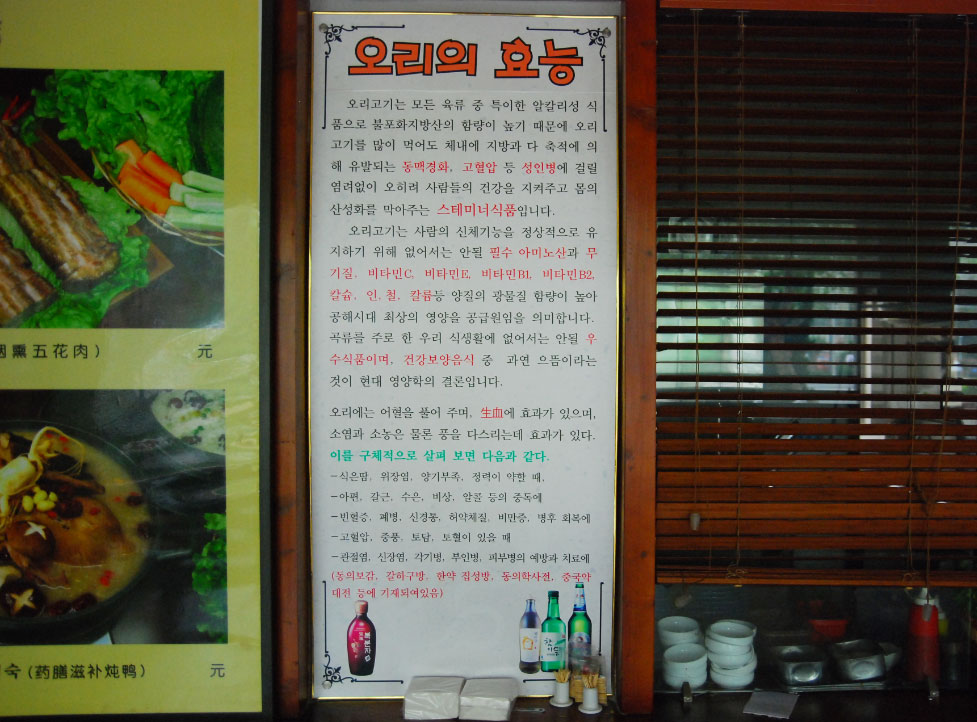 오리의 효능
오리고기는 모든 육류 중 특이한 알칼리성 식
품으로 불포화지방산의 함량이 높기 때문에 오리
고기를 많이 먹어도 체내에 지방과 다 축적에 의
해 유발되는 동맥경화, 고혈압 등 성인병에 걸릴
염려없이 오히려 사람들의 건강을 지켜주고 몸의
산성화를 막아주는 스테미너식품입니다.
오리고기는 사람의 신체기능을 정상적으로 유
지하기 위해 없어서는 안될 필수 아미노산과 무
기질, 비타민C, 비타민E, 비타민B1, 비타민B2,
칼슘, 인, 철, 칼륨등 양질의 광물질 함량이 높아
공해시대 최상의 영양을 공급원임을 의미합니다.
곡류를 주로 한 우리 식생활에 없어서는 안될 우
수식품이며, 건강보양음식 중 과연 으뜸이라는
것이 현대 영양학의 결론입니다.
오리에는 어혈을 풀어 주며, 生血에 효과가 있으며,
소염과 소농은 물론 풍을 다스리는데 효과가 있다.
이를 구체적으로 살펴 보면 다음과 같다.
-식은땀, 위장염, 양기부족, 정력이 약할 때,
-아편, 갈근, 수은, 비상, 알콜 등의 중독에
-빈혈증, 폐병, 신경통, 허약체질, 비만증, 병후 회복에
-고혈압, 중풍, 토담, 토혈이 있을 때
-관절염, 신장염, 각기병, 부인병, 피부병의 예방과 치료에
(동의보감, 갈하구방, 한약 집성방, 동의학사전, 중국약
대전 등에 기재되여있음)
복분자
熏五花肉） 元
숙 (药膳滋补炖鸭) 元